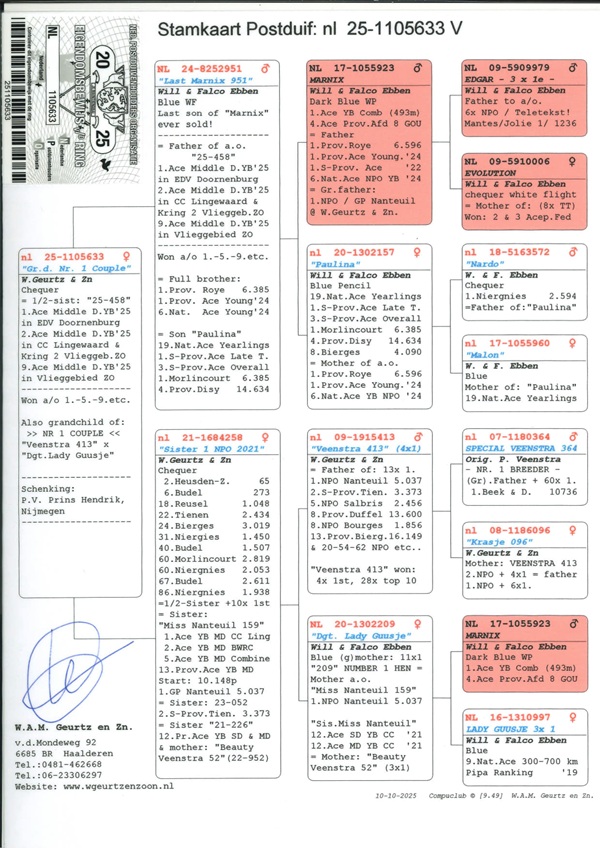 Stamkaart Postduif: nl 25-1105633 V
NED. POSTDUIVENHOUDERS ORGANISATIE
EIGENDOMSBEWIJS RING
20
25
NL
1105633
Nederland
251105633
nl 25-1105633 ♀
"Gr.d. Nr. 1 Couple"
W.Geurtz & Zn
Chequer
= 1/2-sist: "25-458"
1.Ace Middle D.YB'25
in EDV Doornenburg
2.Ace Middle D.YB'25
in CC Lingewaard &
Kring 2 Vlieggeb.ZO
9.Ace Middle D.YB'25
in Vlieggebied ZO
Won a/o 1.-5.-9.etc.
Also grandchild of:
>> NR 1 COUPLE <<
"Veenstra 413" x
"Dgt.Lady Guusje"
Schenking:
P.V. Prins Hendrik,
Nijmegen
NL 24-8252951 ♂
"Last Marnix 951"
Will & Falco Ebben
Blue WF
Last son of "Marnix"
ever sold!
= Father of a.o.
"25-458"
1.Ace Middle D.YB'25
in EDV Doornenburg
2.Ace Middle D.YB'25
in CC Lingewaard &
Kring 2 Vlieggeb.ZO
9.Ace Middle D.YB'25
in Vlieggebied ZO
Won a/o 1.-5.-9.etc.
= Full brother:
1.Prov. Roye 6.385
1.Prov. Ace Young'24
6.Nat. Ace Young'24
= Son "Paulina"
19.Nat.Ace Yearlings
1.S-Prov.Ace Late T.
3.S-Prov.Ace Overall
1.Morlincourt 6.385
4.Prov.Disy 14.634
nl 21-1684258 ♀
"Sister 1 NPO 2021"
W.Geurtz & Zn
Chequer
2.Heusden-Z. 65
6.Budel 273
18.Reusel 1.048
22.Tienen 2.434
24.Bierges 3.019
31.Niergies 1.450
40.Budel 1.507
60.Morlincourt 2.819
60.Niergies 2.053
67.Budel 2.611
86.Niergies 1.938
=1/2-Sister +10x 1st
= Sister:
"Miss Nanteuil 159"
1.Ace YB MD CC Ling
2.Ace YB MD BWRC
5.Ace YB MD Combine
13.Prov.Ace YB MD
Start: 10.148p
1.GP Nanteuil 5.037
= Sister: 23-052
2.S-Prov.Tien. 3.373
= Sister "21-226"
12.Pr.Ace YB SD & MD
& mother: "Beauty
Veenstra 52"(22-952)
NL 17-1055923 ♂
MARNIX
Will & Falco Ebben
Dark Blue WP
1.Ace YB Comb (493m)
4.Ace Prov.Afd 8 GOU
= Father
1.Prov.Roye 6.596
1.Prov.Ace Young.'24
1.S-Prov. Ace '22
6.Nat.Ace NPO YB '24
= Gr.father:
1.NPO / GP Nanteuil
@ W.Geurtz & Zn.
nl 20-1302157 ♀
"Paulina"
Will & Falco Ebben
Blue Pencil
19.Nat.Ace Yearlings
1.S-Prov.Ace Late T.
3.S-Prov.Ace Overall
1.Morlincourt 6.385
4.Prov.Disy 14.634
8.Bierges 4.090
= Mother of a.o.
1.Prov.Roye 6.596
1.Prov.Ace Young.'24
6.Nat.Ace YB NPO '24
nl 09-1915413 ♂
"Veenstra 413" (4x1)
W.Geurtz & Zn
= Father of: 13x 1.
1.NPO Nanteuil 5.037
2.S-Prov.Tien. 3.373
5.NPO Salbris 2.456
8.Prov.Duffel 13.600
8.NPO Bourges 1.856
13.Prov.Bierg.16.149
& 20-54-62 NPO etc..
"Veenstra 413" won:
4x 1st, 28x top 10
NL 20-1302209 ♀
"Dgt. Lady Guusje"
Will & Falco Ebben
Blue (g)mother: 11x1
"209" NUMBER 1 HEN =
Mother a.o.
"Miss Nanteuil 159"
1.NPO Nanteuil 5.037
"Sis.Miss Nanteuil"
12.Ace SD YB CC '21
12.Ace MD YB CC '21
= Mother: "Beauty
Veenstra 52" (3x1)
NL 09-5909979 ♂
EDGAR - 3 x 1e -
Will & Falco Ebben
Father to a/o.
6x NPO / Teletekst!
Mantes/Jolie 1/ 1236
NL 09-5910006 ♀
EVOLUTION
Will & Falco Ebben
chequer white flight
= Mother of: (8x TT)
Won: 2 & 3 Acep.Fed
nl 18-5163572 ♂
"Nardo"
W. & F. Ebben
Chequer
1.Niergnies 2.594
=Father of:"Paulina"
nl 17-1055960 ♀
"Malon"
W. & F. Ebben
Blue
Mother of: "Paulina"
19.Nat.Ace Yearlings
nl 07-1180364 ♂
SPECIAL VEENSTRA 364
Orig. P. Veenstra
- NR. 1 BREEDER -
(Gr).Father + 60x 1.
1.Beek & D. 10736
nl 08-1186096 ♀
"Krasje 096"
W.Geurtz & Zn
Mother: VEENSTRA 413
2.NPO + 4x1 = father
1.NPO + 6x1.
NL 17-1055923 ♂
MARNIX
Will & Falco Ebben
Dark Blue WP
1.Ace YB Comb (493m)
4.Ace Prov.Afd 8 GOU
NL 16-1310997 ♀
LADY GUUSJE 3x 1
Will & Falco Ebben
Blue
9.Nat.Ace 300-700 km
Pipa Ranking '19
W.A.M. Geurtz en Zn.
v.d.Mondeweg 92
6685 BR Haalderen
Tel.:0481-462668
Tel.:06-23306297
Website: www.wgeurtzenzoon.nl
10-10-2025 Compuclub © [9.49] W.A.M. Geurtz en Zn.